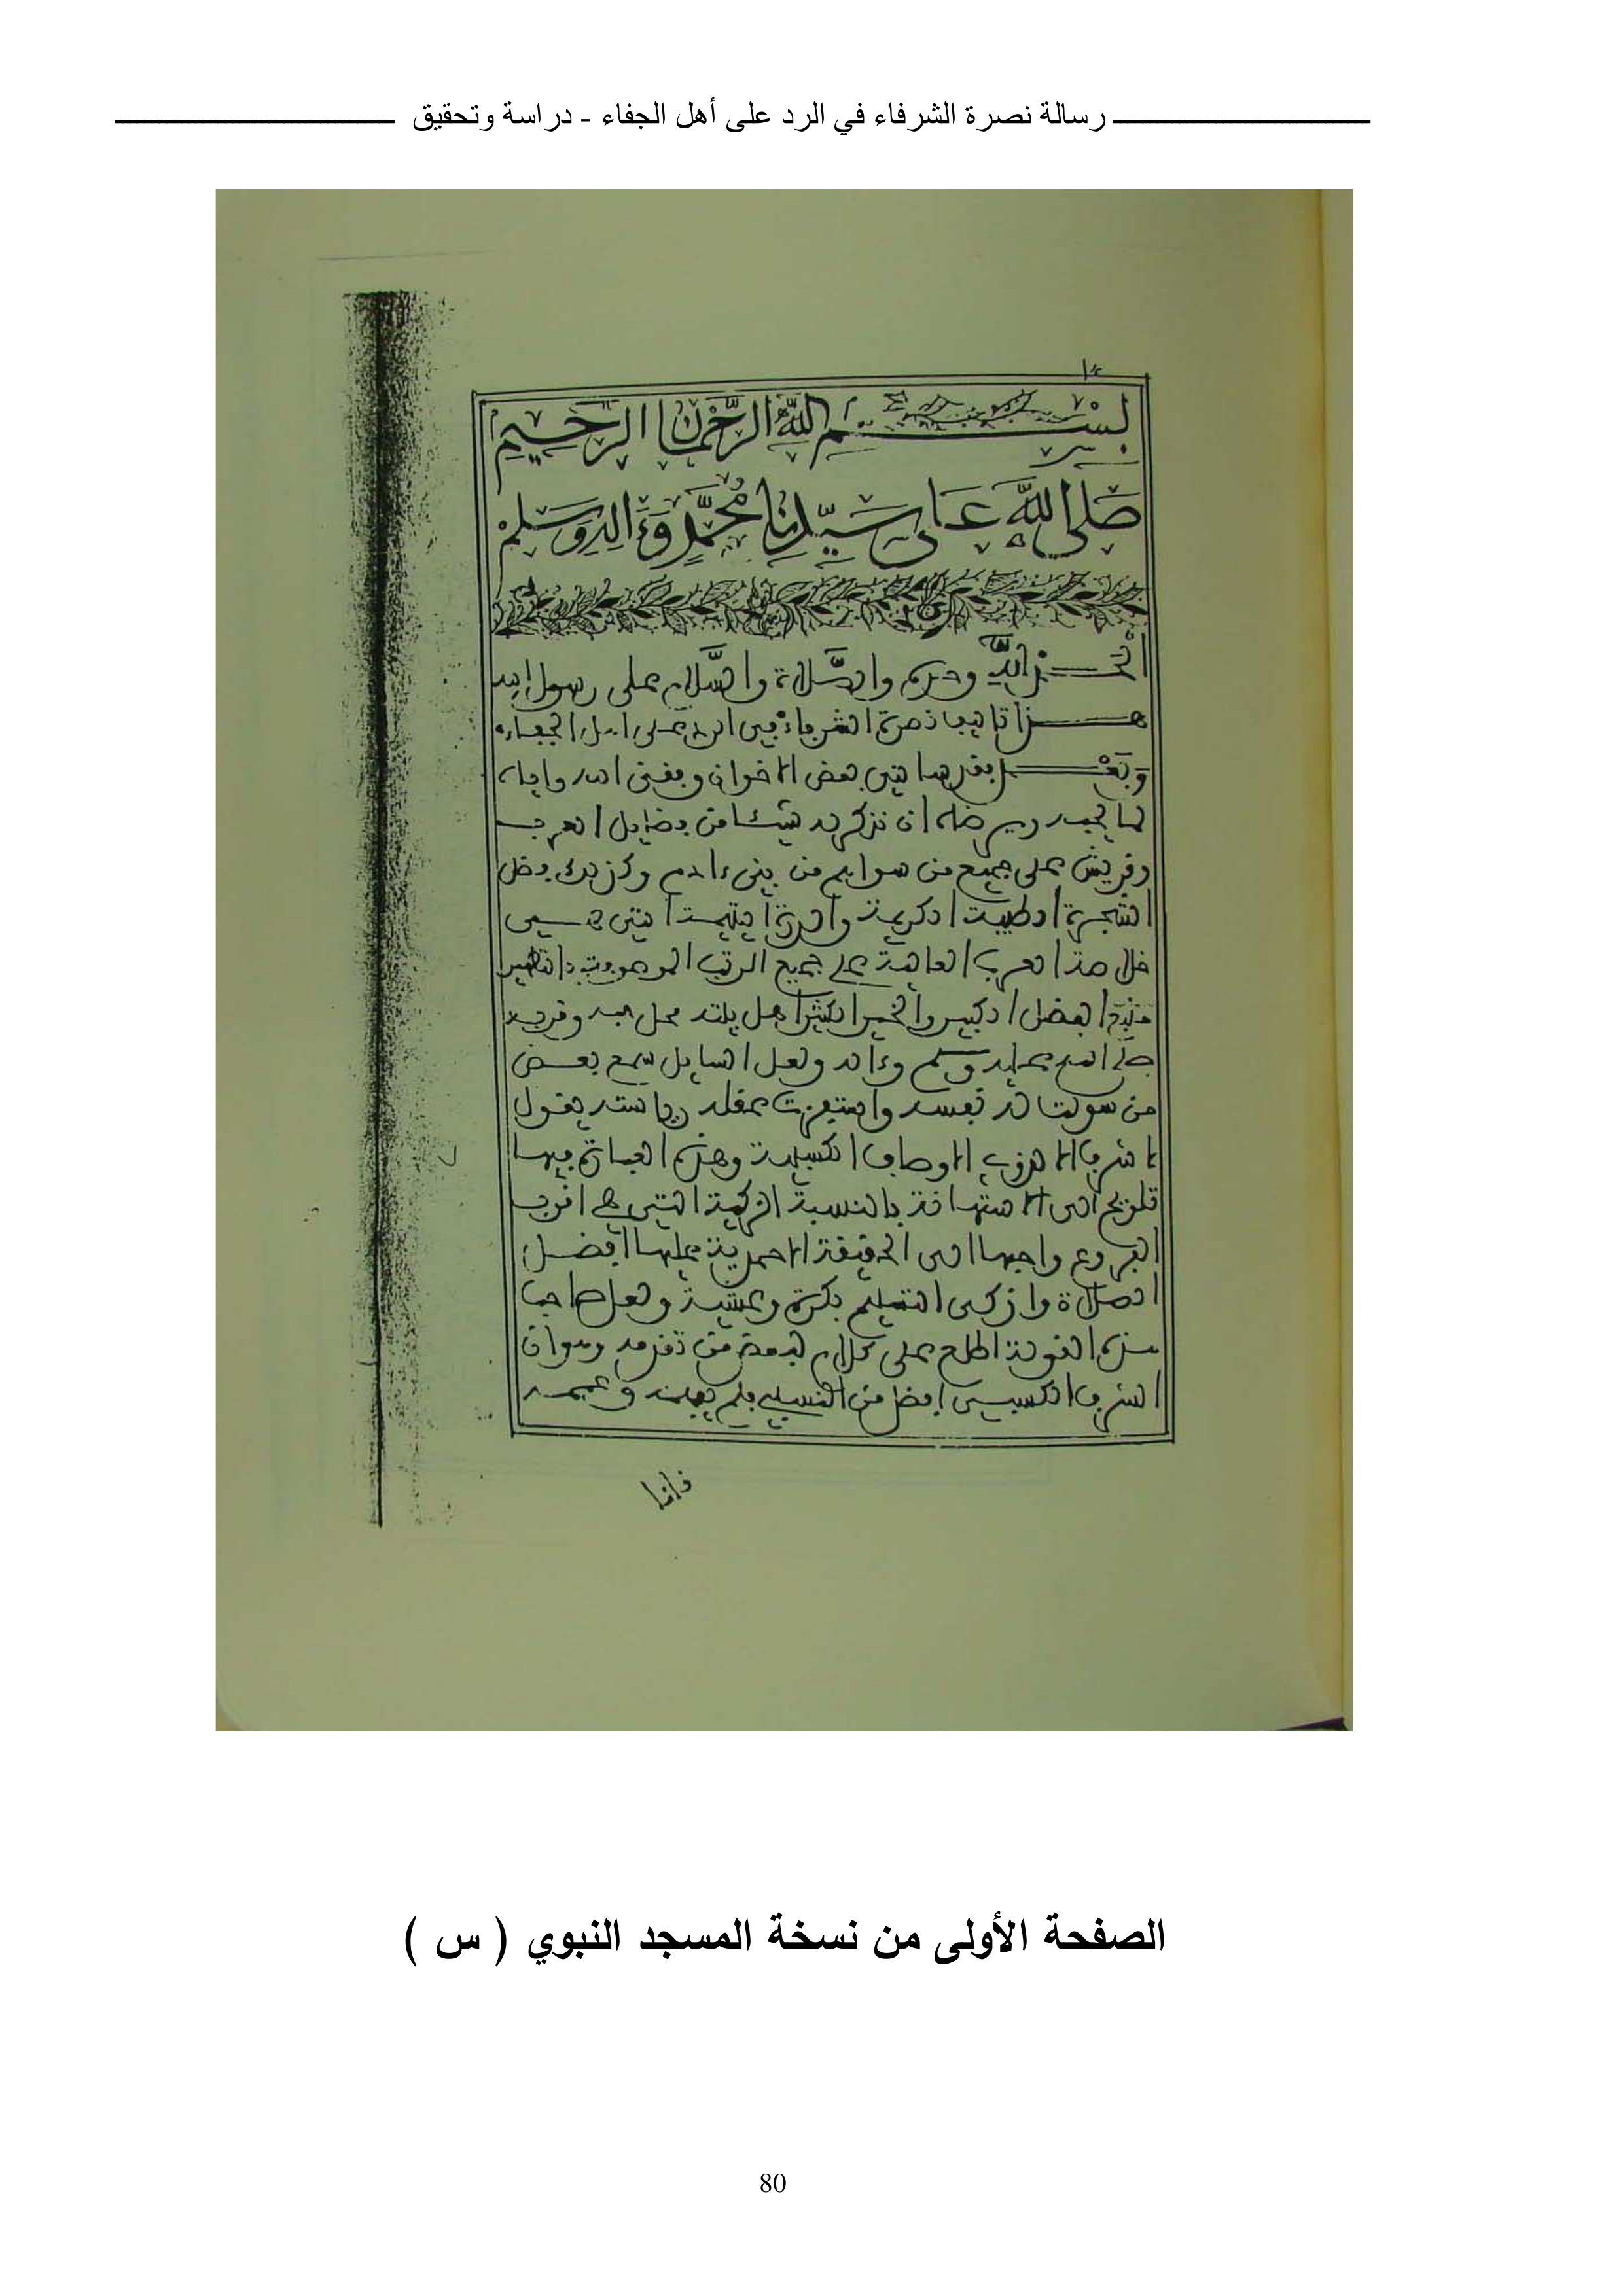 رسالة نصرة الشرفاء في الرد على أهل الجفاء - دراسة وتحقيق
بسم الله الرحمن الرحيم
صلى الله على سيدنا محمد وءاله وسلم
الحمد لله وحده والصلاة والسلام على رسول الله
هذا تاليف نصرة الشرفاء في الرد على اهل الجفاء
وبعد فقد سالني بعض الاخوان وفقني الله واياه
لما يحبه ويرضاه ان نذكر له شيئا من فضايل العرب
وقريش على جميع من سواهم من بني ءادم وكذلك فضل
الشجرة الطيبة الكريمة والدرة اليتيمة التي هي
خلاصة العرب العالية على جميع الرتب الموصوفة بالتطهير
الفضل الكبير والخير الكثير اهل بيته محل حبه وقربه
صلى الله عليه وسلم وءاله ولعل السايل سمع بعض
من سولت له نفسه واستهزت بعقله يقول
لا شرف الا هذه الاوصاف الكسبية وهذه العبارة فيها
تلويح الى الاستهانة بالنسبة الزكية التي هي اقرب
الفروع واجبها الى الحقيقة الاحمدية عليها افضل
الصلاة وازكى التسليم بكرة وعشية ولعل صاحب
هذه القولة اطلع على كلام لبعض من تقدمه وهو ان
الشرف الكسبي افضل من النسبي فلم يفهمه
فانما
الصفحة الأولى من نسخة المسجد النبوي ( س )
80